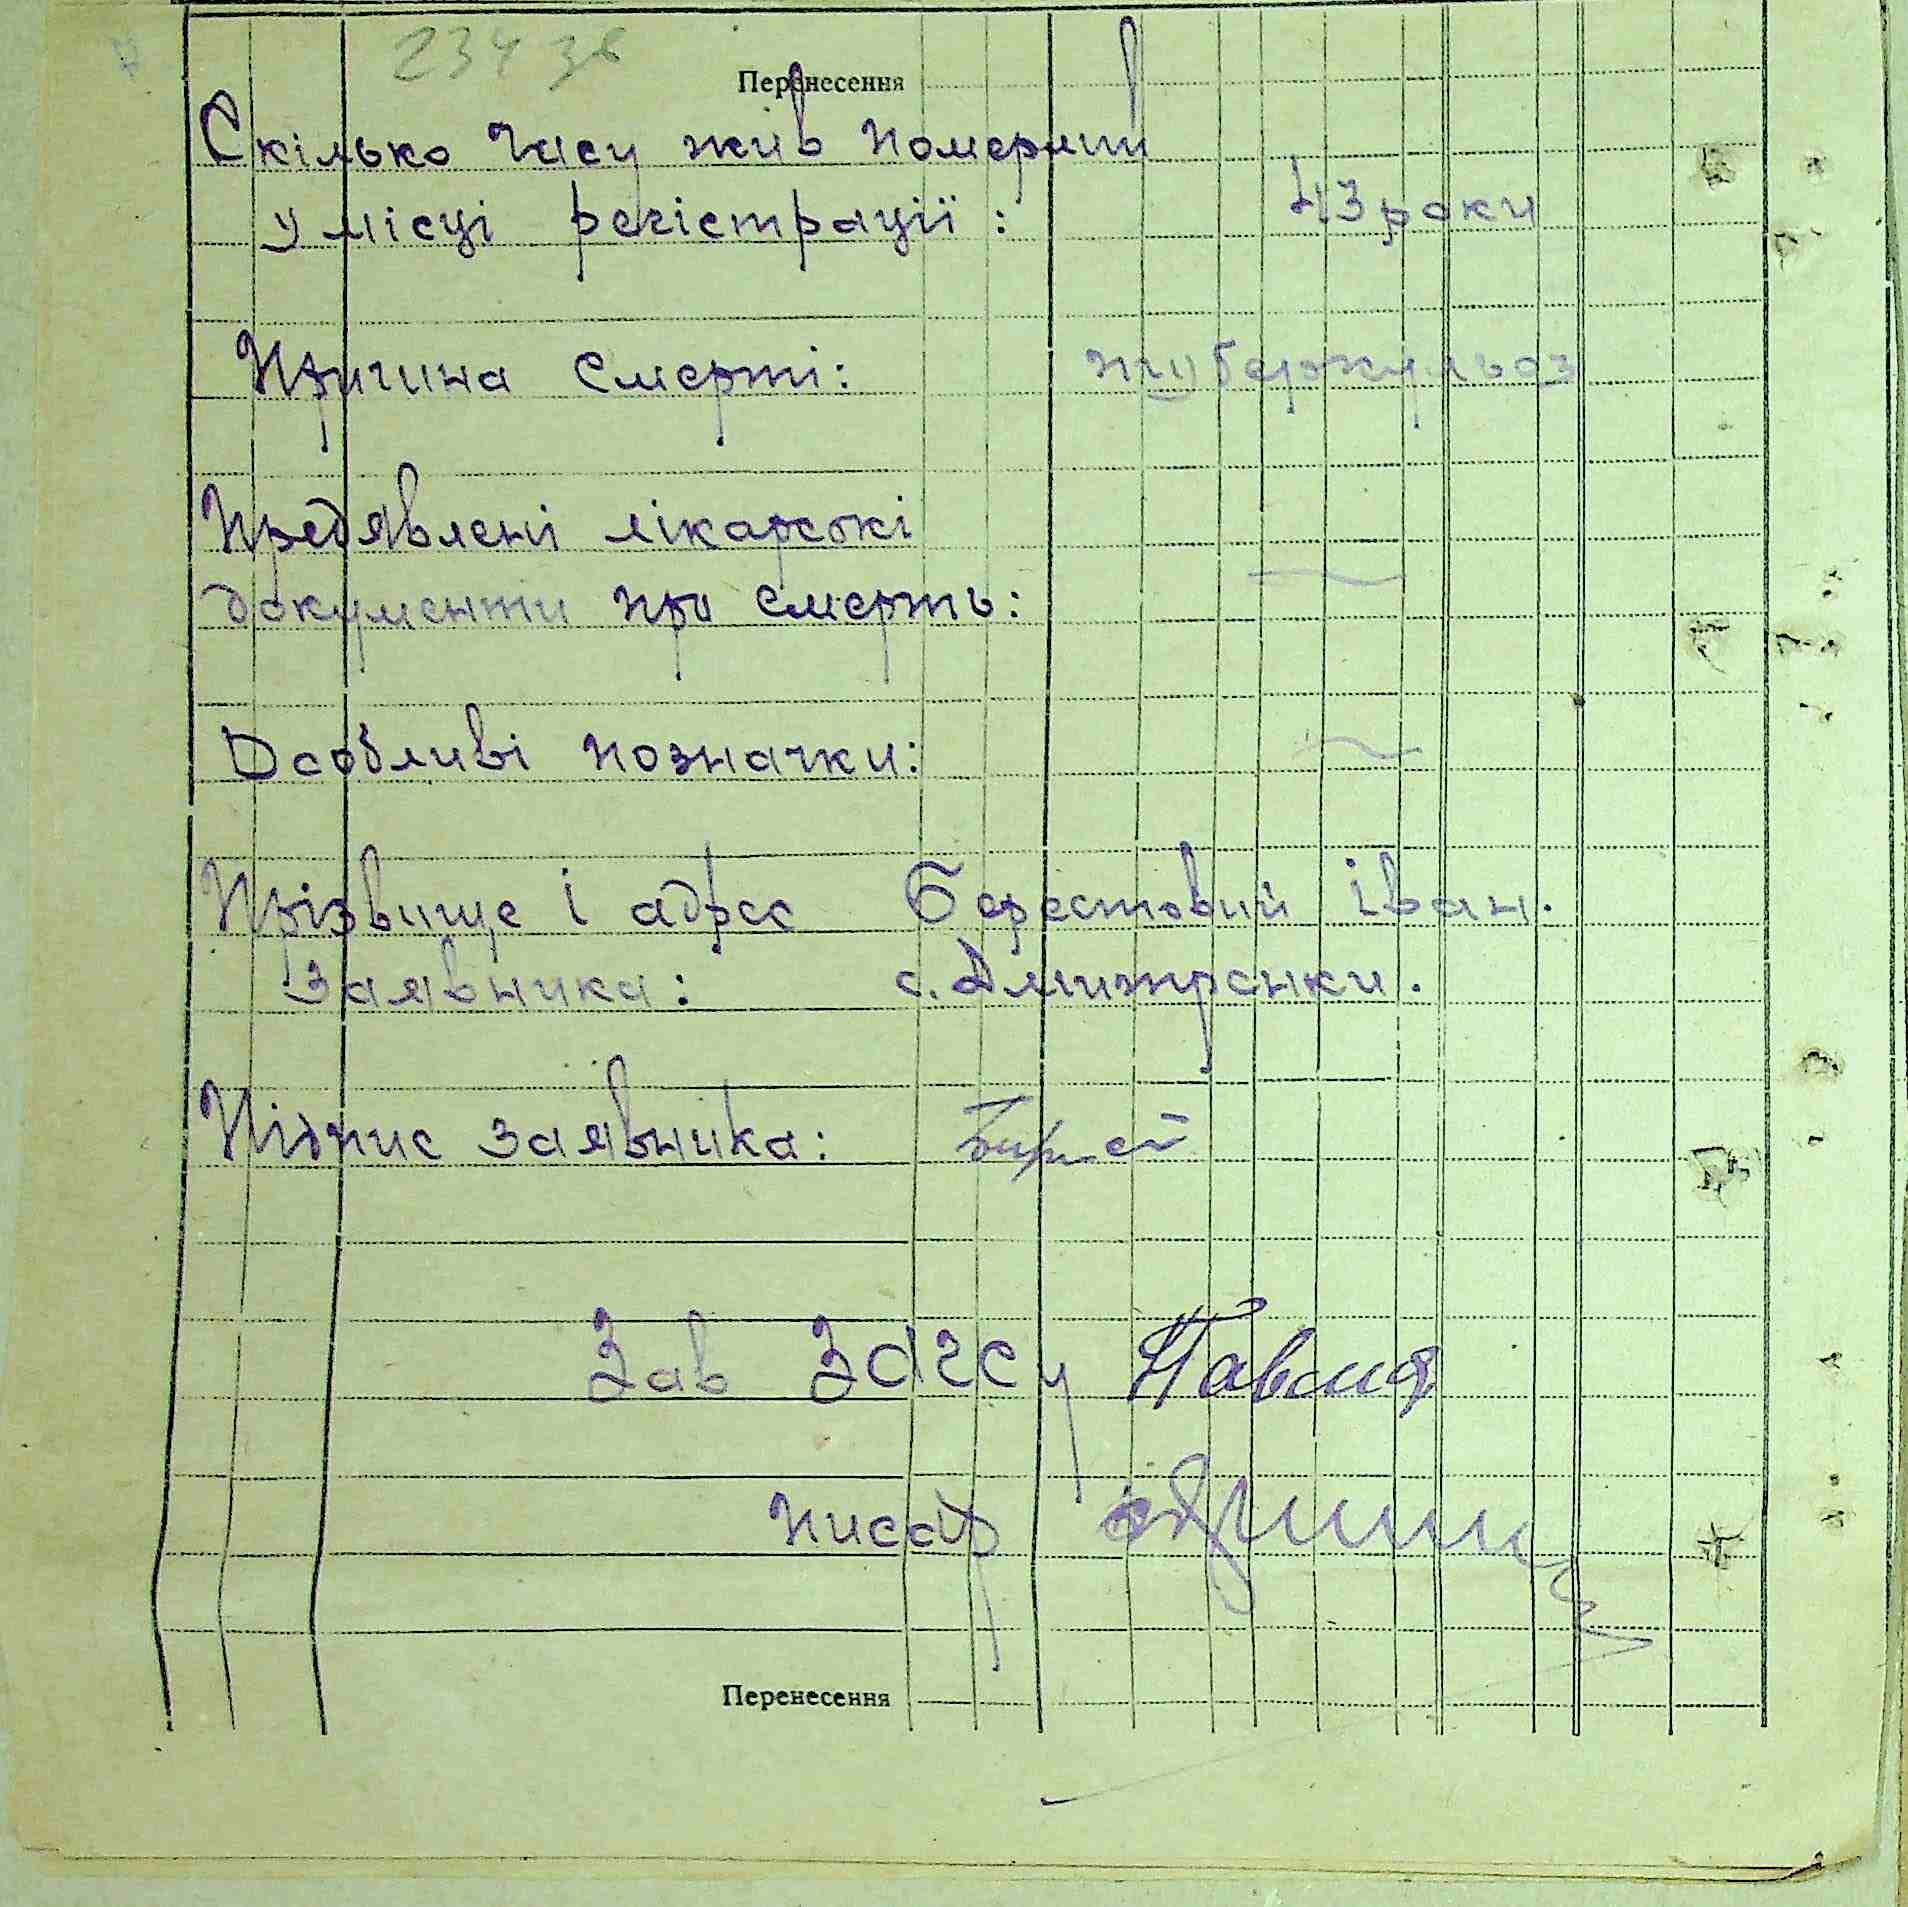 234 зв
Перенесення
Скілько часу жив померлий
у місці регістрації: 43 роки
Причина смерті: туберкульоз
Предявлені лікарські
документи про смерть: —
Особливі позначки: —
Прізвище і адрес Берестовий Іван.
заявника: с. Дмитренки.
Підпис заявника:
Зав Загсу
писар
Перенесення